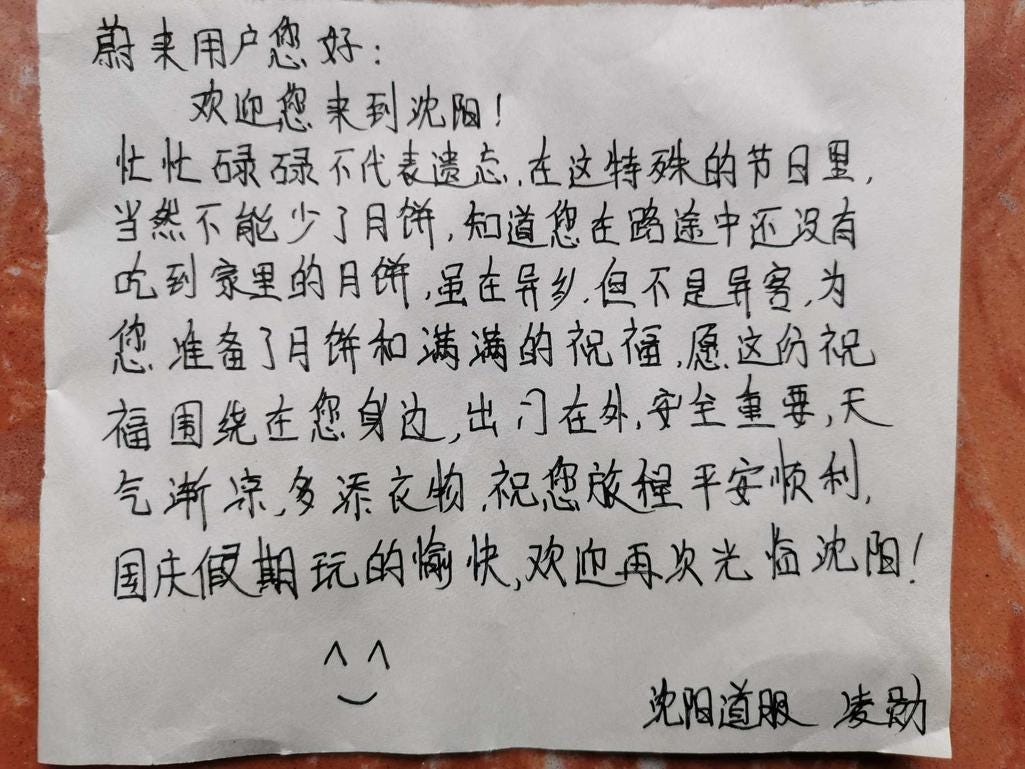 蔚来用户您好：
欢迎您来到沈阳！
忙忙碌碌不代表遗忘,在这特殊的节日里,
当然不能少了月饼,知道您在路途中还没有
吃到家里的月饼,虽在异乡,但不是异客,为
您准备了月饼和满满的祝福,愿这份祝
福围绕在您身边,出门在外,安全重要,天
气渐凉,多添衣物,祝您旅程平安顺利,
国庆假期玩的愉快,欢迎再次光临沈阳！
沈阳道服 凌勋